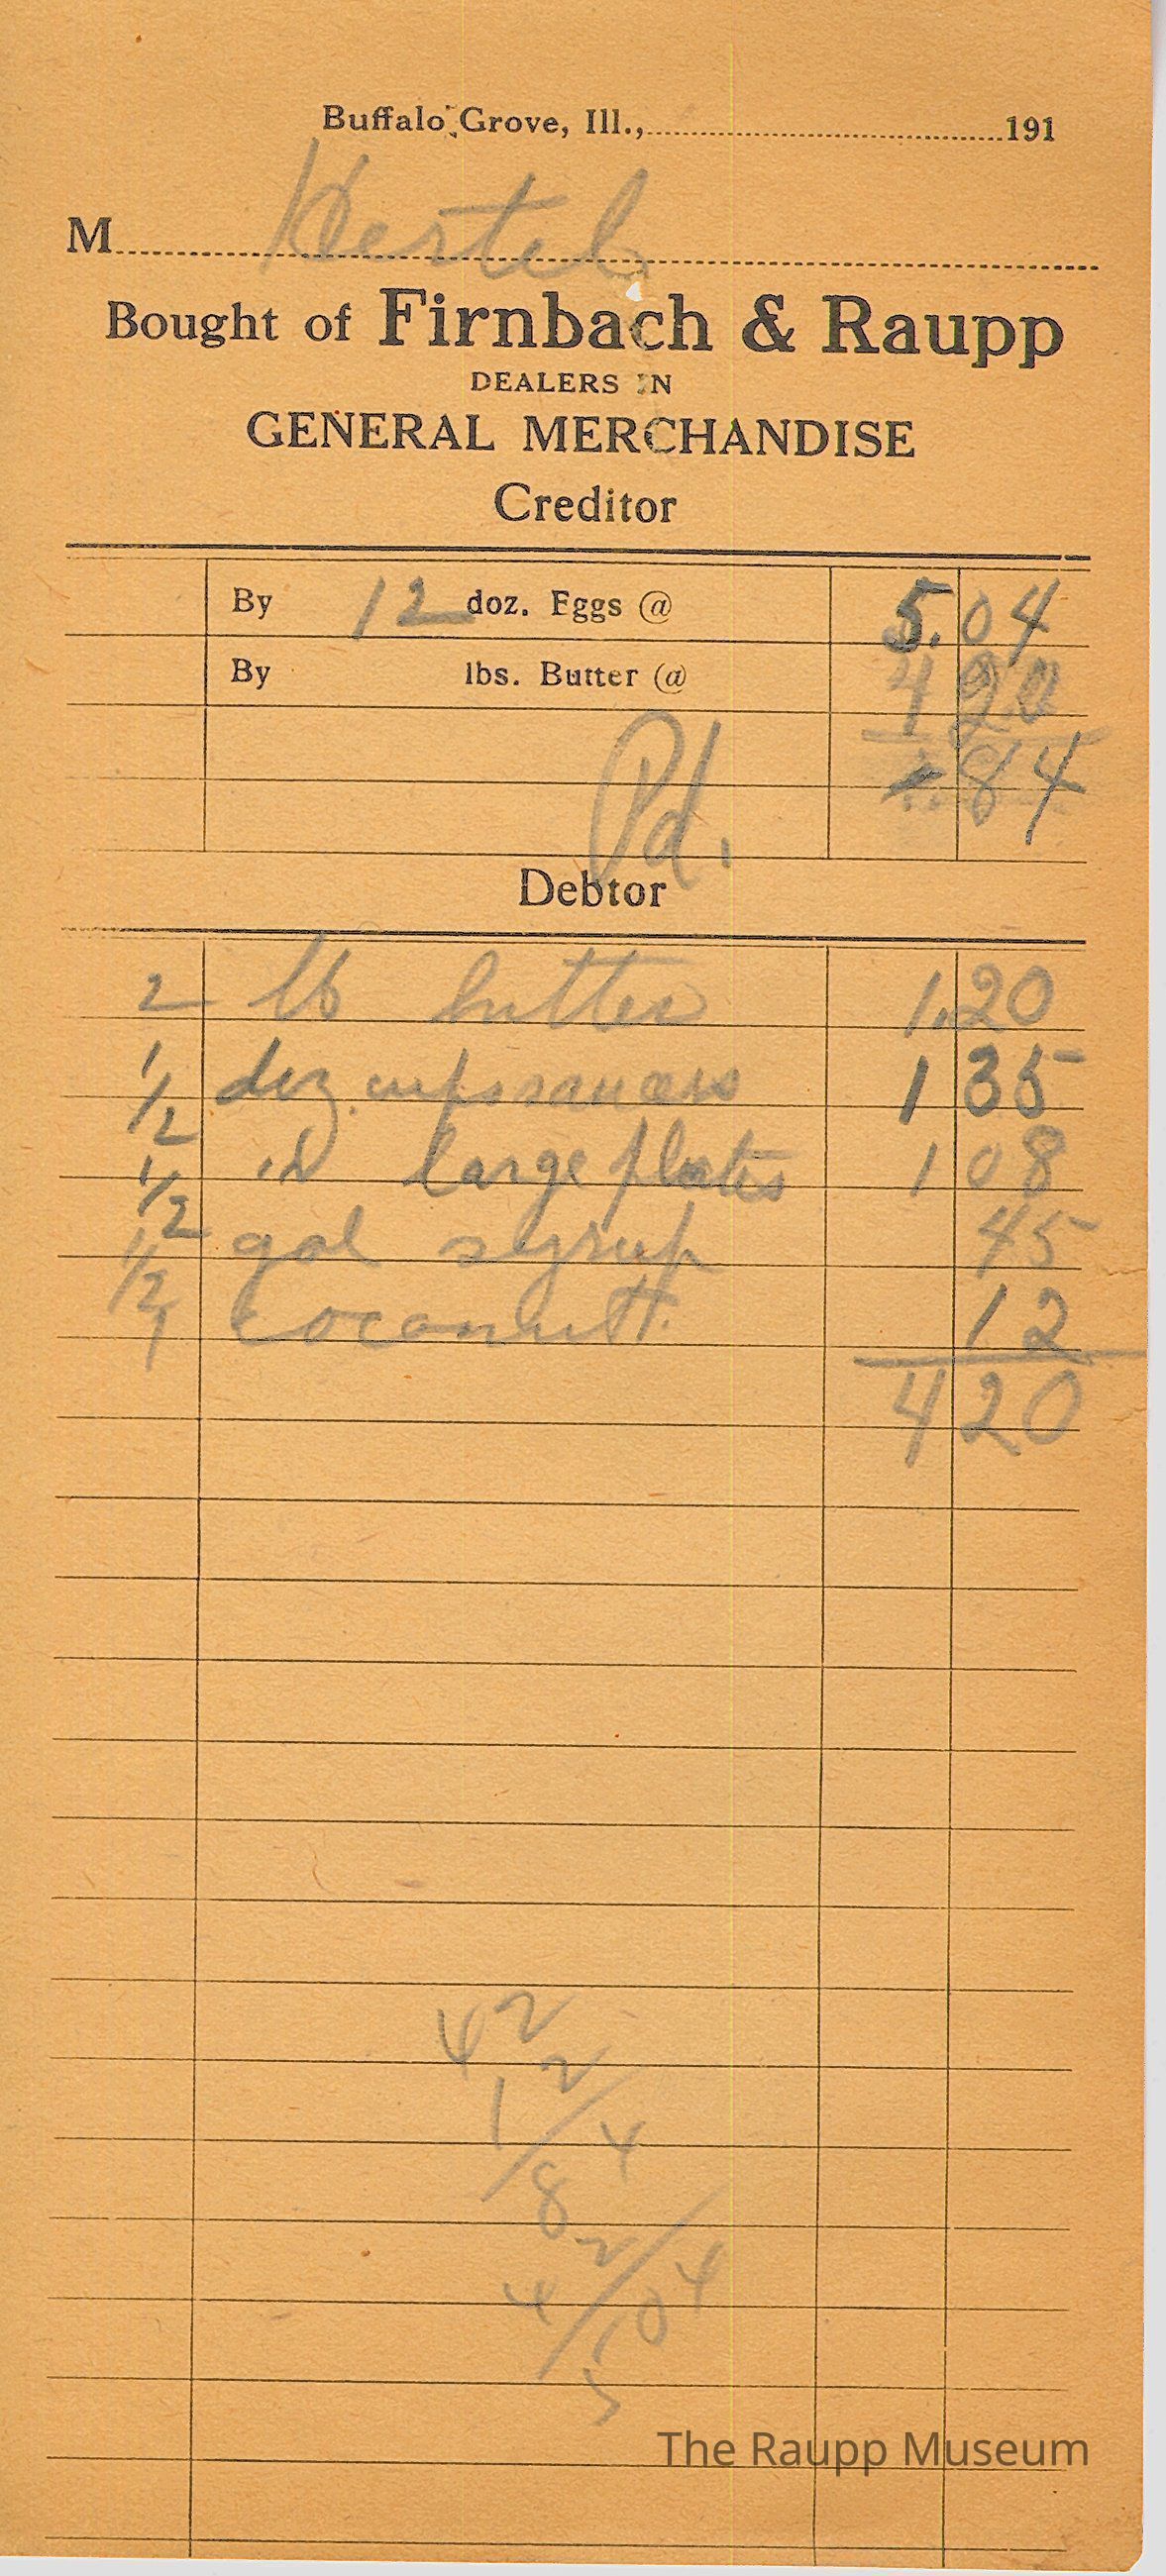 Buffalo Grove, Ill., 191
M Hertel
Bought of Firnbach & Raupp
DEALERS IN
GENERAL MERCHANDISE
Creditor
By 12 doz. Eggs @ 5.04
By lbs. Butter @ 4 20
84
Pd.
Debtor
2 lb butter 1.20
1/2 doz. cups saucers 1 35
1/2 " large plates 1 08
1/2 gal syrup 45
1 coconutt. 12
4 20
42
12
84
42
504
The Raupp Museum